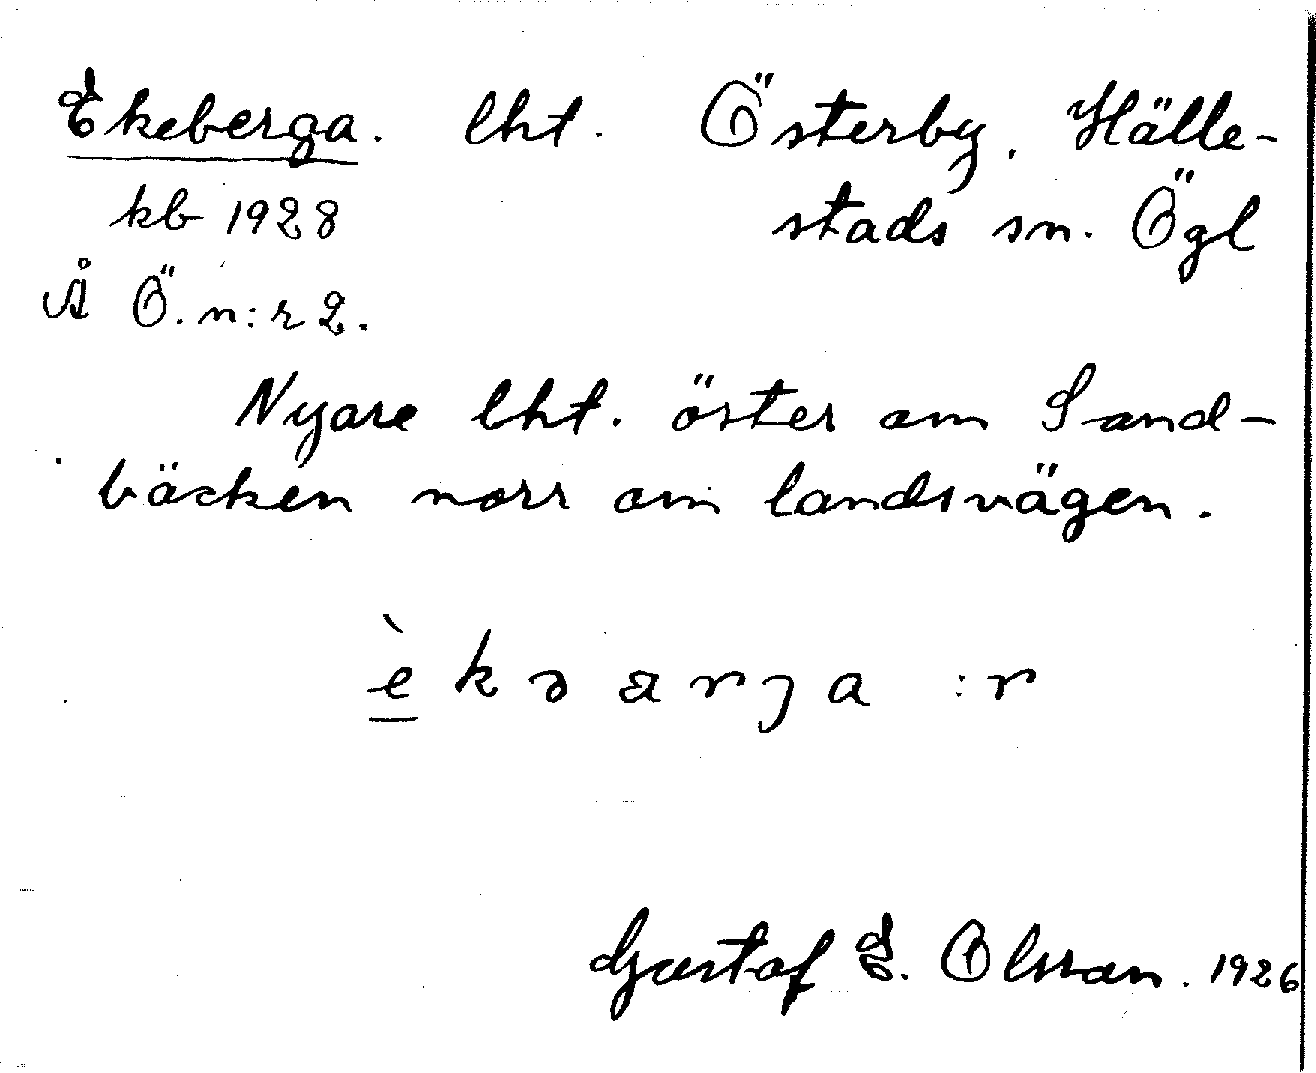 Ekeberga. lht. Österby. Hälle-
kb 1928 stads sn. Ögl
Å Ö. n:r 2.
Nyare lht. öster om Sand-
bäcken norr om landsvägen.
è̠kəarja :r
Gustaf E. Olsson. 1926